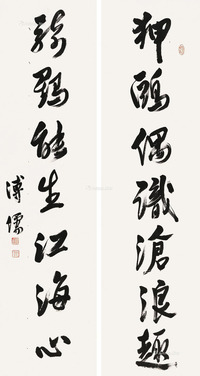 狎鷗偶識滄浪趣
鶴能生江海心
溥儒